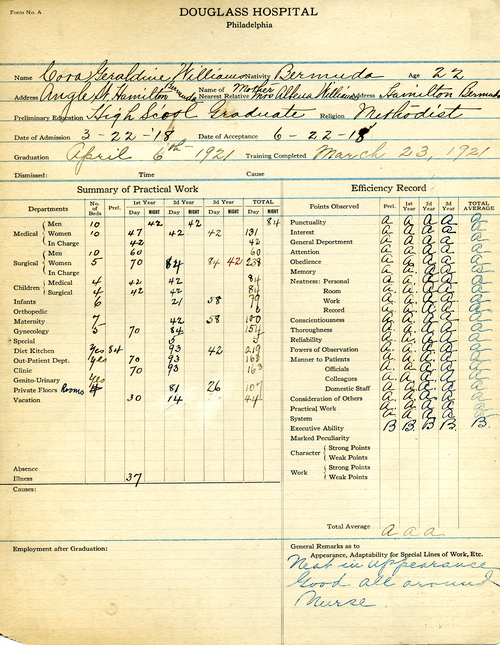 Form No. A
DOUGLASS HOSPITAL
Philadelphia
Name Cora Geraldine Williams Nativity Bermuda Age 22
Address Angle St. Hamilton Bermuda Name of Nearest Relative Mother Mrs Albena Williams Address Hamilton Bermuda
Preliminary Education High Scool Graduate Religion Methodist
Date of Admission 3-22-'18 Date of Acceptance 6-22-18
Graduation April 6th 1921 Training Completed March 23, 1921
Dismissed: Time Cause
Summary of Practical Work
Departments No. of Beds Prel. 1st Year 2d Year 3d Year TOTAL
Day NIGHT Day NIGHT Day NIGHT Day NIGHT
Medical Men 10 42 42 84
Women 10 47 42 42 131
In Charge 42 42
Surgical Men 10 60 60
Women 5 70 84 84 42 238
In Charge
Children Medical 4 42 42 84
Surgical 4 42 42 84
Infants 6 21 58 79
Orthopedic 6
Maternity 7 42 58 100
Gynecology 5 70 84 154
Special 5 5
Diet Kitchen yes 84 93 42 219
Out-Patient Dept. yes 70 93 163
Clinic 70 93 163
Genito-Urinary yes
Private Floors Rooms 4 81 26 107
Vacation 30 14 44
Absence
Illness 37
Causes:
Employment after Graduation:
Efficiency Record
Points Observed Prel. 1st Year 2d Year 3d Year TOTAL AVERAGE
Punctuality A A A A A
Interest A A A A A
General Department A A A A A
Attention A A A A A
Obedience A A A A A
Memory A A A A A
Neatness: Personal A A A A A
Room A A A A A
Work A A A A A
Record A A A A
Conscientiousness A A A A A
Thoroughness A A A A A
Reliability A A A A A
Powers of Observation A A A A A
Manner to Patients A A A A A
Officials A A A A A
Colleagues A A A A A
Domestic Staff A A A A A
Consideration of Others A A A A A
Practical Work A A A A A
System A A A A A
Executive Ability B B B B B
Marked Peculiarity
Character Strong Points
Weak Points
Work Strong Points
Weak Points
Total Average a a a
General Remarks as to
Appearance, Adaptability for Special Lines of Work, Etc.
Neat in appearance
Good all around
Nurse.